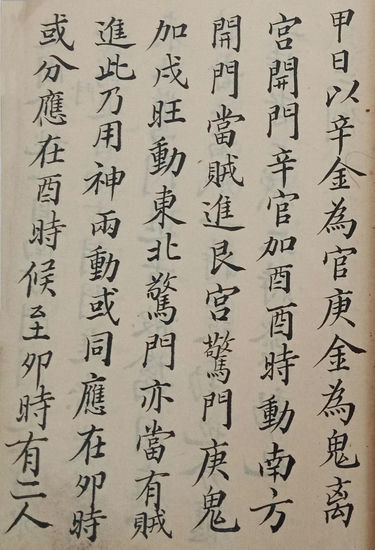 甲日以辛金為官庚金為鬼离
宮開門辛官加酉酉時動南方
開門當賊進艮宮驚門庚鬼
加戌旺動東北驚門亦當有賊
進此乃用神兩動或同應在卯時
或分應在酉時候至卯時有二人